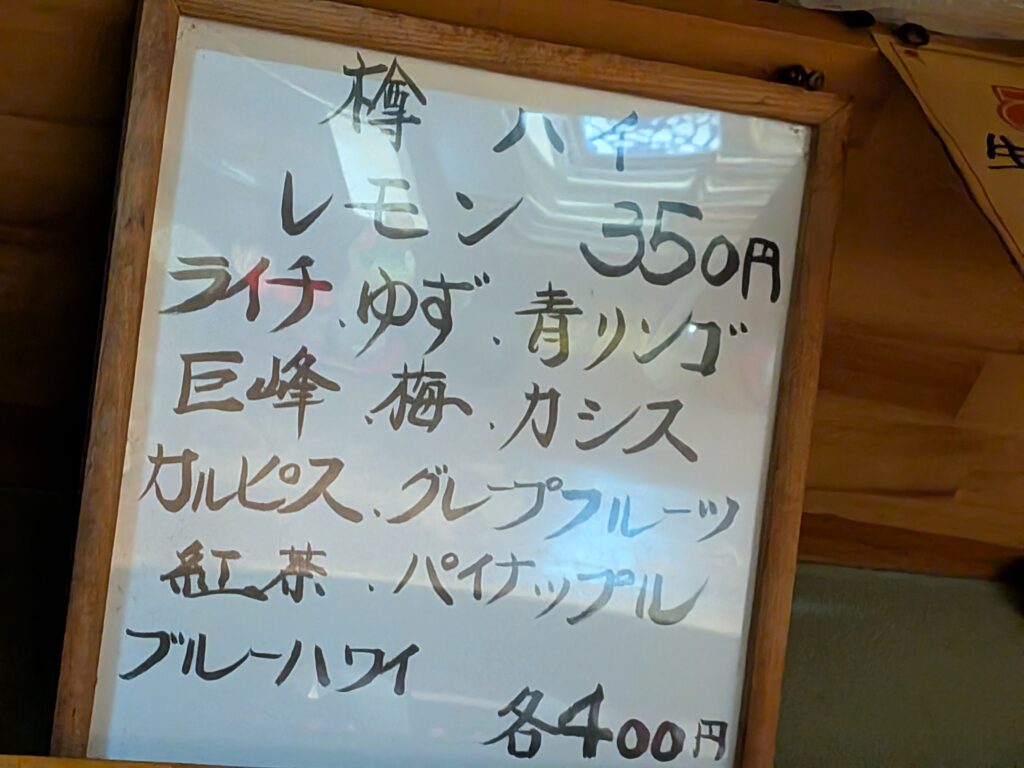 樽ハイ
レモン 350円
ライチ、ゆず、青リンゴ
巨峰、梅、カシス
カルピス、グレープフルーツ
紅茶、パイナップル
ブルーハワイ
各400円